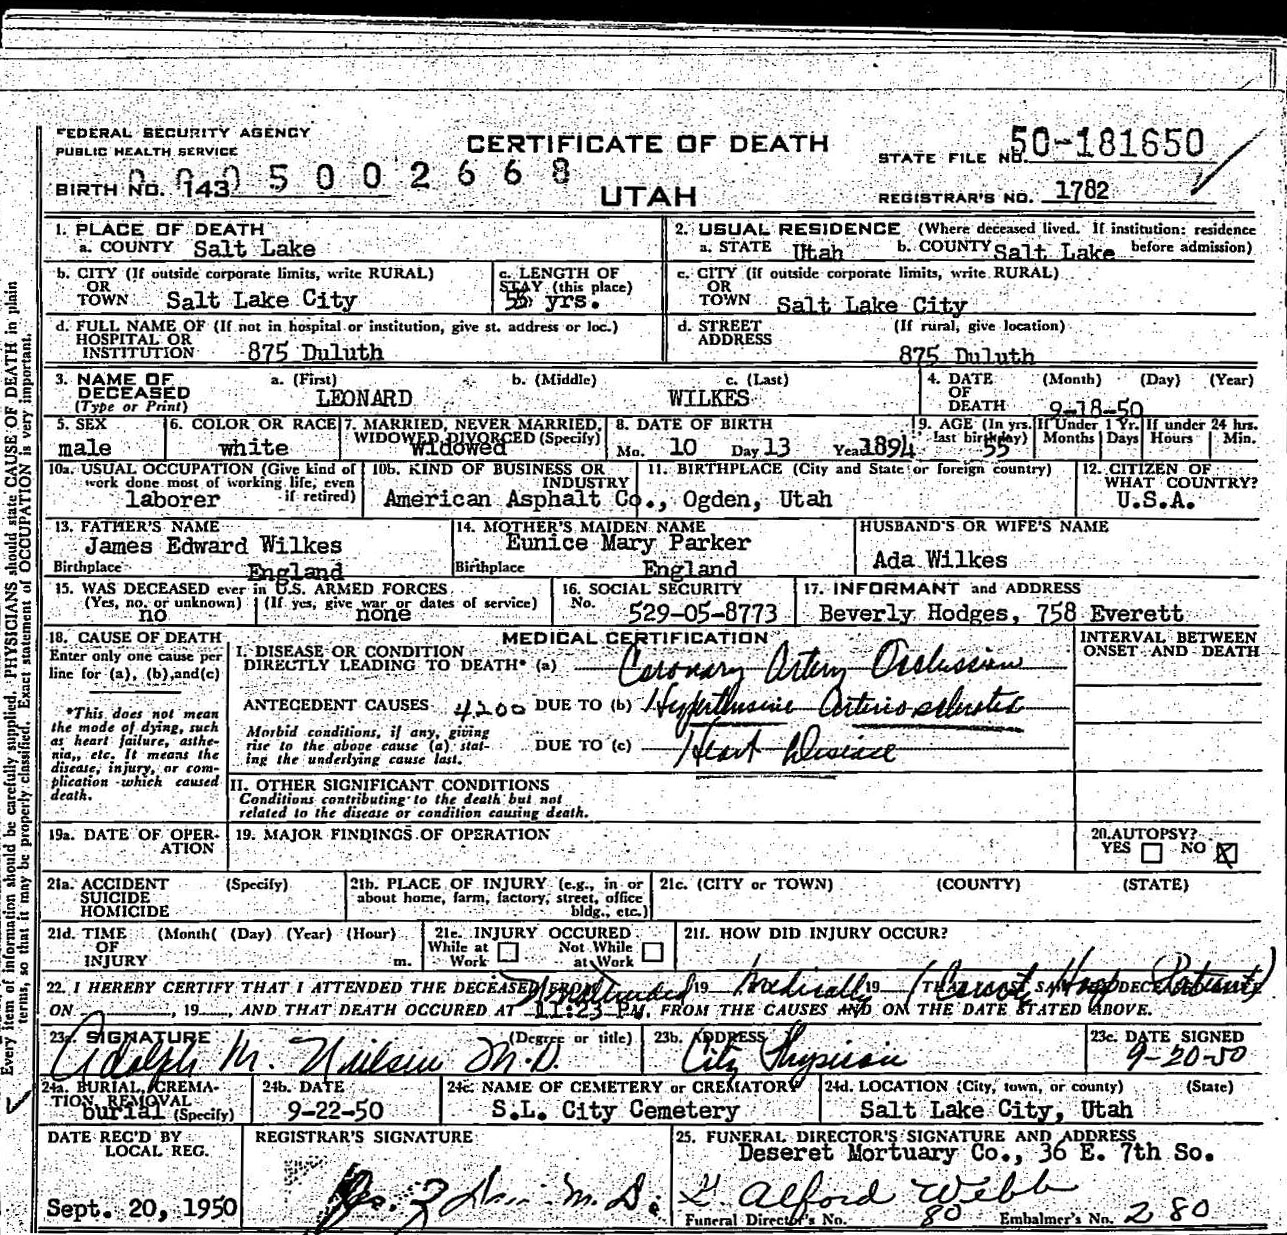 FEDERAL SECURITY AGENCY
PUBLIC HEALTH SERVICE
CERTIFICATE OF DEATH
UTAH
STATE FILE NO. 50-181650
BIRTH NO. 143
0005002668
REGISTRAR'S NO. 1782
1. PLACE OF DEATH
a. COUNTY Salt Lake
2. USUAL RESIDENCE (Where deceased lived. If institution: residence before admission)
a. STATE Utah b. COUNTY Salt Lake
b. CITY (If outside corporate limits, write RURAL)
OR
TOWN Salt Lake City
c. LENGTH OF
STAY (this place)
55 yrs.
c. CITY (If outside corporate limits, write RURAL)
OR
TOWN Salt Lake City
d. FULL NAME OF (If not in hospital or institution, give st. address or loc.)
HOSPITAL OR
INSTITUTION 875 Duluth
d. STREET (If rural, give location)
ADDRESS
875 Duluth
3. NAME OF DECEASED
(Type or Print)
a. (First) b. (Middle) c. (Last)
LEONARD WILKES
4. DATE OF DEATH (Month) (Day) (Year)
9-18-50
5. SEX
male
6. COLOR OR RACE
white
7. MARRIED, NEVER MARRIED,
WIDOWED, DIVORCED (Specify)
widowed
8. DATE OF BIRTH
Mo. 10 Day 13 Year 1894
9. AGE (In yrs. last birthday)
55
If Under 1 Yr.
Months Days
If under 24 hrs.
Hours Min.
10a. USUAL OCCUPATION (Give kind of
work done most of working life, even
if retired)
laborer
10b. KIND OF BUSINESS OR
INDUSTRY
American Asphalt Co.,
11. BIRTHPLACE (City and State or foreign country)
Ogden, Utah
12. CITIZEN OF
WHAT COUNTRY?
U.S.A.
13. FATHER'S NAME
James Edward Wilkes
Birthplace England
14. MOTHER'S MAIDEN NAME
Eunice Mary Parker
Birthplace England
HUSBAND'S OR WIFE'S NAME
Ada Wilkes
15. WAS DECEASED ever in U.S. ARMED FORCES
(Yes, no, or unknown) (If yes, give war or dates of service)
no none
16. SOCIAL SECURITY
No. 529-05-8773
17. INFORMANT and ADDRESS
Beverly Hodges, 758 Everett
18. CAUSE OF DEATH
Enter only one cause per
line for (a), (b), and (c)
*This does not mean
the mode of dying, such
as heart failure, asthe-
nia,, etc. It means the
disease, injury, or com-
plication which caused
death.
MEDICAL CERTIFICATION
INTERVAL BETWEEN
ONSET AND DEATH
I. DISEASE OR CONDITION
DIRECTLY LEADING TO DEATH* (a) Coronary Artery Occlusion
ANTECEDENT CAUSES 4200 DUE TO (b) Hypertensive Arteriosclerotic
Morbid conditions, if any, giving
rise to the above cause (a) stat-
ing the underlying cause last.
DUE TO (c) Heart Disease
II. OTHER SIGNIFICANT CONDITIONS
Conditions contributing to the death but not
related to the disease or condition causing death.
19a. DATE OF OPER-
ATION
19. MAJOR FINDINGS OF OPERATION
20. AUTOPSY?
YES NO X
21a. ACCIDENT (Specify)
SUICIDE
HOMICIDE
21b. PLACE OF INJURY (e.g., in or
about home, farm, factory, street, office
bldg., etc.)
21c. (CITY or TOWN) (COUNTY) (STATE)
21d. TIME (Month( (Day) (Year) (Hour)
OF
INJURY m.
21e. INJURY OCCURED
While at Work Not While at Work
21f. HOW DID INJURY OCCUR?
22. I HEREBY CERTIFY THAT I ATTENDED THE DECEASED FROM 19 19 THAT I LAST SAW THE DECEASED ALIVE
Unattended Medically
ON , 19 , AND THAT DEATH OCCURED AT 11:23 PM, FROM THE CAUSES AND ON THE DATE STATED ABOVE.
23a. SIGNATURE (Degree or title)
Adolph M. Nielsen M.D.
23b. ADDRESS
City Physician
23c. DATE SIGNED
9-20-50
24a. BURIAL, CREMA-
TION, REMOVAL
burial (Specify)
24b. DATE
9-22-50
24c. NAME OF CEMETERY or CREMATORY
S.L. City Cemetery
24d. LOCATION (City, town, or county) (State)
Salt Lake City, Utah
DATE REC'D BY
LOCAL REG.
Sept. 20, 1950
REGISTRAR'S SIGNATURE
M.D.
25. FUNERAL DIRECTOR'S SIGNATURE AND ADDRESS
Deseret Mortuary Co., 36 E. 7th So.
Alford Webb
Funeral Director's No. 80 Embalmer's No. 280
Every item of information should be carefully supplied. PHYSICIANS should state CAUSE OF DEATH in plain
terms, so that it may be properly classified. Exact statement of OCCUPATION is very important.